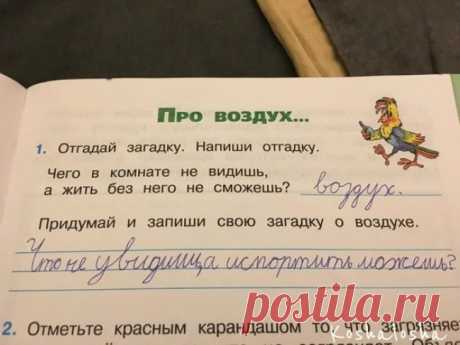 Про воздух...
1. Отгадай загадку. Напиши отгадку.
Чего в комнате не видишь,
а жить без него не сможешь? воздух.
Придумай и запиши свою загадку о воздухе.
Что не увидиш а испортить можешь?
2. Отметьте красным карандашом то, что загрязняет
postila.ru
KoshaTosha